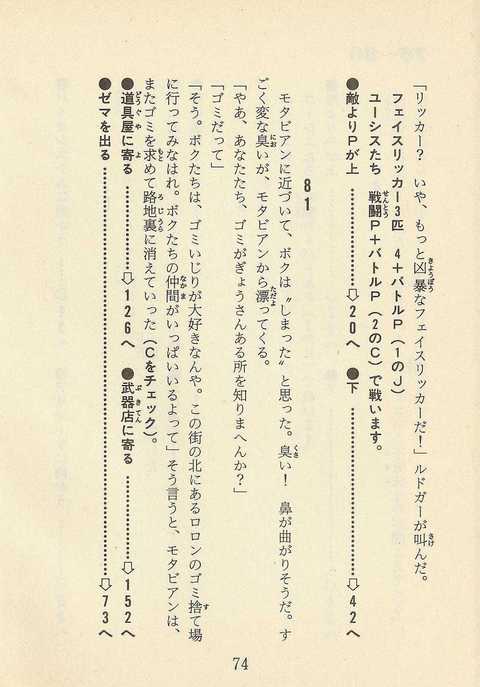 「リッカー？　いや、もっと凶暴なフェイスリッカーだ！」ルドガーが叫んだ。
フェイスリッカー3匹　4＋バトルP（1のJ）
ユーシスたち　戦闘P＋バトルP（2のC）で戦います。
●敵よりPが上……⇨20へ　●下……⇨42へ
81
モタビアンに近づいて、ボクは〝しまった〟と思った。臭い！　鼻が曲がりそうだ。す
ごく変な臭いが、モタビアンから漂ってくる。
「やあ、あなたたち、ゴミがぎょうさんある所を知りまへんか？」
「ゴミだって」
「そう。ボクたちは、ゴミいじりが大好きなんや。この街の北にあるロロンのゴミ捨て場
に行ってみなはれ。ボクたちの仲間がいっぱいいるよって」そう言うと、モタビアンは、
またゴミを求めて路地裏に消えていった（Cをチェック）。
●道具屋に寄る……⇨126へ　●武器店に寄る……⇨152へ
●ゼマを出る……⇨73へ
74